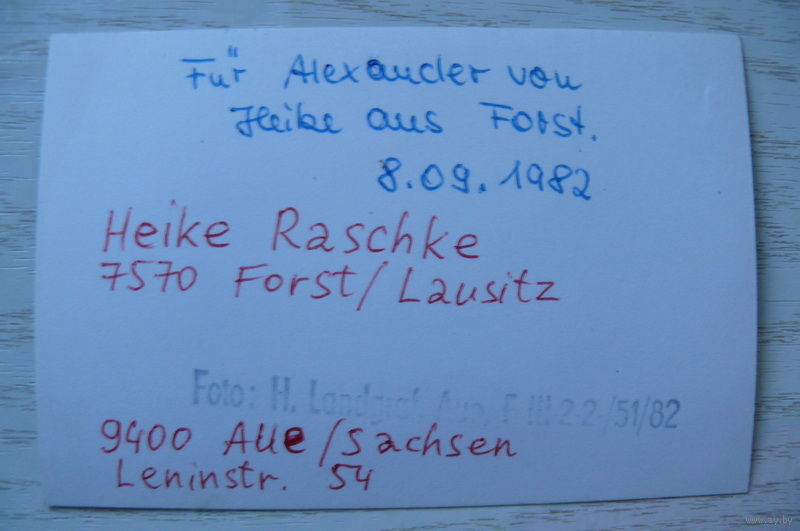 Für Alexander von
Heike aus Forst.
8.09.1982
Heike Raschke
7570 Forst/Lausitz
Foto: H. Landgraf, Aue, F III-2-2-/51/82
9400 Aue/Sachsen
Leninstr. 54
www.ay.by